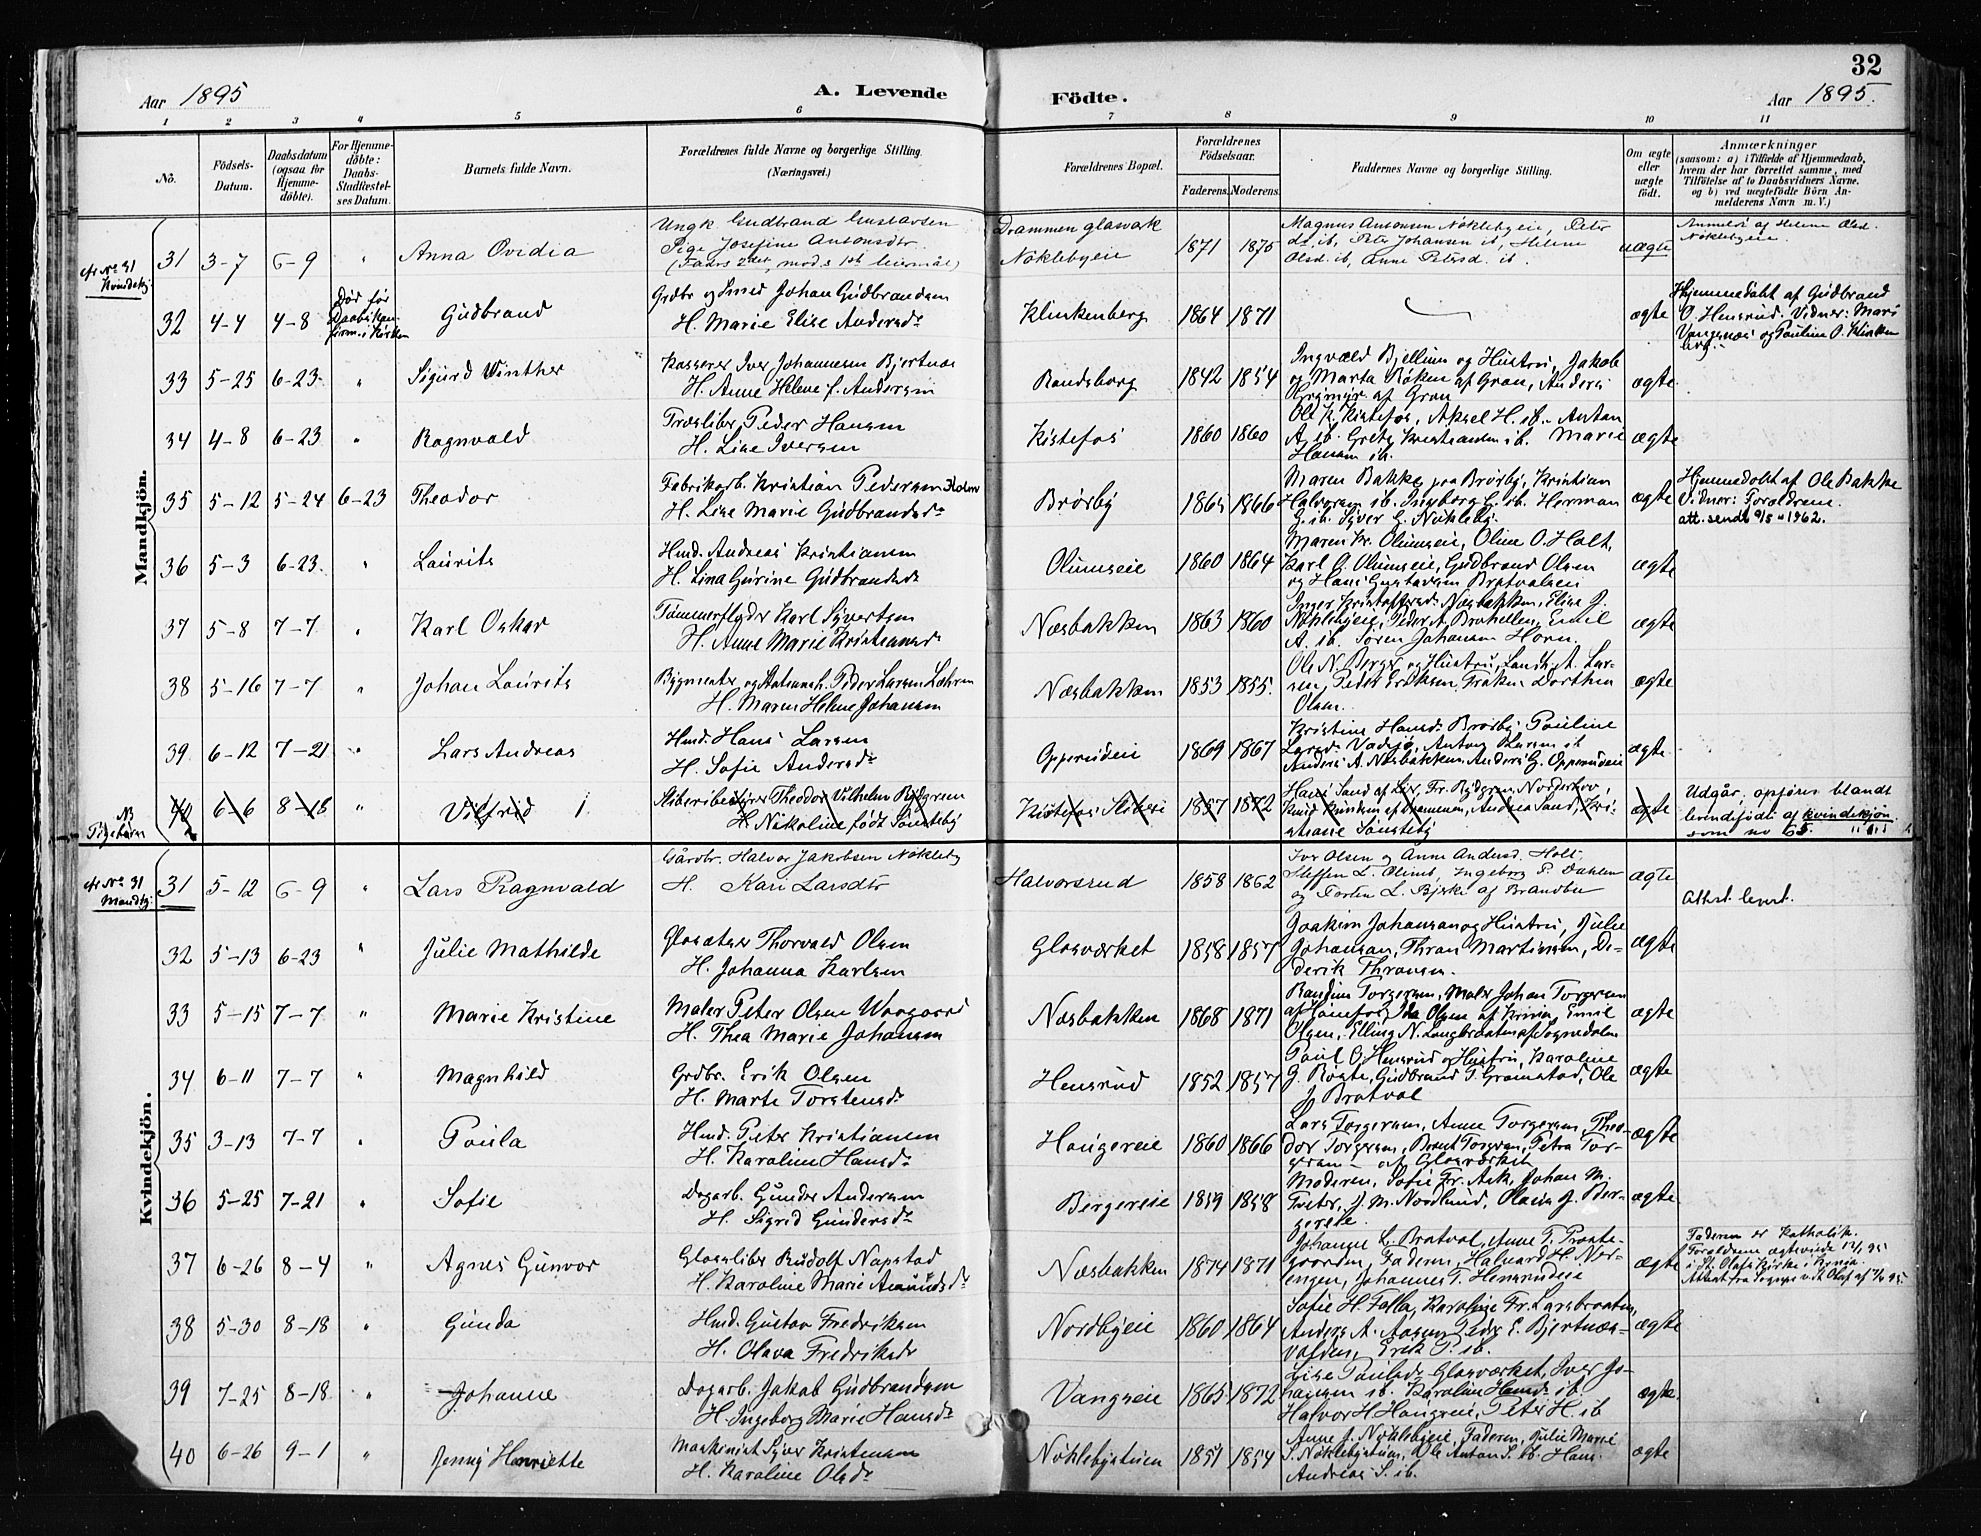 32
Aar 1895
A. Levende
Födte.
Aar 1895.
1 2 3 4 5 6 7 8 9 10 11
No.
Födsels-Datum.
Daabsdatum (ogsaa for Hjemme-döbte).
For Hjemme-döbte: Daabs-Stadfæstel-ses Datum.
Barnets fulde Navn.
Forældrenes fulde Navne og borgerlige Stilling.
(Næringsvei.)
Forældrenes Bopæl.
Forældrenes Födselsaar.
Faderens. Moderens.
Faddernes Navne og borgerlige Stilling.
Om ægte eller uægte födt.
Anmærkninger
(saasom: a) i Tilfælde af Hjemmedaab,
hvem der har forrettet samme, med
Tilföielse af to Daabsvidners Navne,
og b) ved uægtefödte Börn An-
melderens Navn m. V.)
Mandkjön.
cfr No 31 Kvindekj.
31 3-7 6-9 " Anna Ovidia
Ungk Gudbrand Gustavsen
Pige Josefine Antonsdtr.
Drammen glasværk
Nöklebyeie
1871 1875
Magnus Antonsen Nöklebyeie, Peter
ib, Peter Johansen ib, Helene
Olsd. ib, Anne Petersd. ib.
uægte
Anmeldt af Helene Olsd.
Nöklebyeie.
32 4-4 4-8 Död før Daabskon-firm. i Kirken
Gudbrand
Grdbr og Smed Johan Gudbrandsen
H. Marie Elise Andersdr
Klinkenberg 1864 1871 ægte
Hjemmedöbt af Gudbrand
O. Hensrud. Vidner: Mari
Vangsnes og Pauline O. Klinken
berg.
33 5-25 6-23 " Sigurd Vinther
Kasserer Iver Johannesen Bjertnæs
H. Anne Helene f. Andersen
Randsborg 1842 1854
Ingvald Bjellum og Hustru, Jakob
og Marta Röken af Gran, Anders
af Gran
ægte
34 4-8 6-23 " Ragnvald
Træsliber Peder Hansen
H. Lise Iversen
Kistefos 1860 1860
Ole K. Kistefos, Aksel H. ib., Anton
A. ib. Grete Kristiansen ib. Marie
Hansen ib.
ægte
35 5-12 5-24 6-23 Theodor
Fabrikarb. Kristian Pedersen Holm
H. Lise Marie Gudbrandsdr
Brörby 1865 1866
Maren Bakke paa Brörby, Kristian
Halvorsen ib. Ingeborg G. ib. Herman
G. ib. Syver G. Nökleby.
ægte
Hjemmedöbt af Ole Bakke
Vidner: Forældrene.
att. sendt 9/5 1962.
36 5-3 6-23 " Laurits
Hmd. Andreas Kristiansen
H. Lina Gurine Gudbrandsdr
Olimseie 1860 1864
Maren Kr. Olimseie, Oline O. Holt,
Karl O. Olimseie, Gudbrand Olsen
og Hans Gustavsen Bratvalseie
ægte
37 5-8 7-7 " Karl Oskar
Tömmerflyder Karl Syvertsen
H. Anne Marie Kristiansdr
Næsbakken 1863 1860
Inger Kristoffersdr Næsbakken, Elise J.
Nöklebyeie, Peder A. Brakellen, Emil
A. ib. Sören Johansen Horn.
ægte
38 5-16 7-7 " Johan Laurits
Bygmester og Stationsh. Peder Larsen Lohren
H. Maren Helene Johansen
Næsbakken 1853 1855.
Ole N. Berger og Hustru, Landh. A. Lar-
sen, Peder Eriksen, Fröken Dorthea
Olsen.
ægte
39 6-12 7-21 " Lars Andreas
Hmd. Hans Larsen
H. Sofie Andersdr
Opperudeie 1869 1867
Kristine Hansdr Brörby, Pauline
Larsdr Vadsjö, Anton Larsen ib
Anders A. Næsbakken, Anders G. Opperudeie
ægte
NB Pigebarn
40 6-6 8-18 " Vilfrid 1.
Sliberibestyrer Theodor Vilhelm Rydgren
H. Nikoline födt Sönsteby
Kistefos Sliberi 1857 1872
Hans Sand af Lier, Fr. Rydgren Noderhov,
Knud Knudsen af Drammen, Andrea Sand, Kri-
stiane Sönsteby
ægte
Udgår, opföres blandt
levendefödte af kvindekjön
som no 65.
Kvindekjön.
cfr No 31 Mandkj.
31 5-12 6-9 " Lars Ragnvald
Gårdbr. Halvor Jakobsen Nökleby
H. Kari Larsdtr
Halvorsrud 1858 1862
Iver Olsen og Anne Andersd. Holt.
Steffen L. Olimb, Ingeborg P. Dahlen
og Torsten L. Bjerke af Brandbu
ægte
Attest. levert.
32 5-13 6-23 " Julie Mathilde
Glasætser Thorvald Olsen
H. Johanna Karlsen
Glasværket 1858 1857
Joakim Johansen og Hustru, Julie
Johansen, Thran Martinsen, Di-
derik Thransen.
ægte
33 5-15 7-7 " Marie Kristine
Maler Peter Olsen Waagaard
H. Thea Marie Johansen
Næsbakken 1868 1871
Randine Torgersen, Maler Johan Torgersen
af Hönefos, Ida Olsen af Krivia, Emil
Olsen, Elling N. Langbraaten af Sognedalen
ægte
34 6-11 7-7 " Magnhild
Grdbr. Erik Olsen
H. Marte Torstensdr
Hensrud 1852 1857
Paul O. Hensrud og Hustru, Karoline
G. Rögte, Gudbrand T. Grimstad, Ole
J. Bratval
ægte
35 3-13 7-7 " Paula
Hmd. Peter Kristiansen
H. Karoline Hansdr
Haugereie 1860 1866
Lars Torgersen, Anne Torgersen, Theo-
dor Torgersen, Bernt Torgersen, Petra Tor-
gersen - af Glasværket
ægte
36 5-25 7-21 " Sofie
Dagarb. Gunder Andersen
H. Sigrid Gundersdr
Bergereie 1859 1858
Moderen, Sofie Fr. Ask, Johan M.
Tveter, J. M. Nordlund, Olaus J. Ber-
gereie.
ægte
37 6-26 8-4 " Agnes Gunvor
Glassliber Rudolf Napstad
H. Karoline Marie Amundsdr
Næsbakken 1874 1871
Johanne L. Bratval, Anne T. Præste-
gaarden, Faderen, Halvard H. Nor-
engen, Johannes T. Hensrudeie
ægte
Faderen er Katholik.
Forældrene ægteviede 12/1 95
i St. Olafs Kirke i Kr.nia.
38 5-30 8-18 " Gunda
Hmd. Gustav Fredriksen
H. Olava Fredriksdr
Nordbyeie 1860 1864
Sofie H. Falla, Karoline Fr. Larsbraaten,
Anders A. Aasen, Peder E. Bjertnæs-
valden, Erik P. ib.
ægte
39 7-25 8-18 " Johanne
Dagarb. Jakob Gudbrandsen
H. Ingeborg Marie Hansdr
Vangseie 1865 1872
Lise Paulsdr Glasværket, Iver Jo-
hansen ib. Karoline Hansdr ib.
Halvor H. Haugseie, Peter H. ib
ægte
40 6-26 9-1 " Jenny Henriette
Maskinist Syver Kristensen
H. Karoline Olsdr
Nöklebystuen 1851 1854
Anne J. Nöklebyeie, Faderen, Julie Marie
S. Nöklebystuen, Ole Anton S. ib. Hans
Andreas S. ib.
ægte